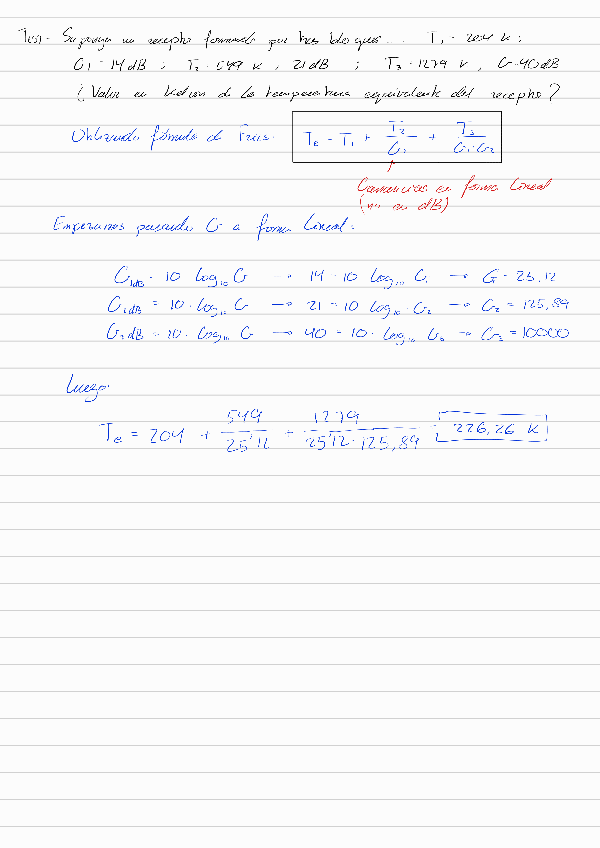 Test - Suponga un receptor formado por tres bloques... T₁ = 204 K ;
G1 = 14 dB ; T₂ = 549 K , 21 dB ; T₃ = 1279 K , G = 40 dB
¿Valor en Kelvin de la temperatura equivalente del receptor?
Utilizando fórmula de Friis: Te = T₁ + T₂/G₁ + T₃/(G₁·G₂)
Ganancias en forma lineal
(no en dB)
Empezamos pasando G a forma lineal:
G₁dB = 10 log₁₀ G → 14 = 10 log₁₀ G₁ → G = 25,12
G₂dB = 10 · log₁₀ G → 21 = 10 log₁₀ · G₂ → G₂ = 125,89
G₃dB = 10 · log₁₀ G → 40 = 10 · log₁₀ G₃ → G₃ = 10000
Luego:
Te = 204 + 549/25'12 + 1279/(25'12 · 125,89) 226,26 K